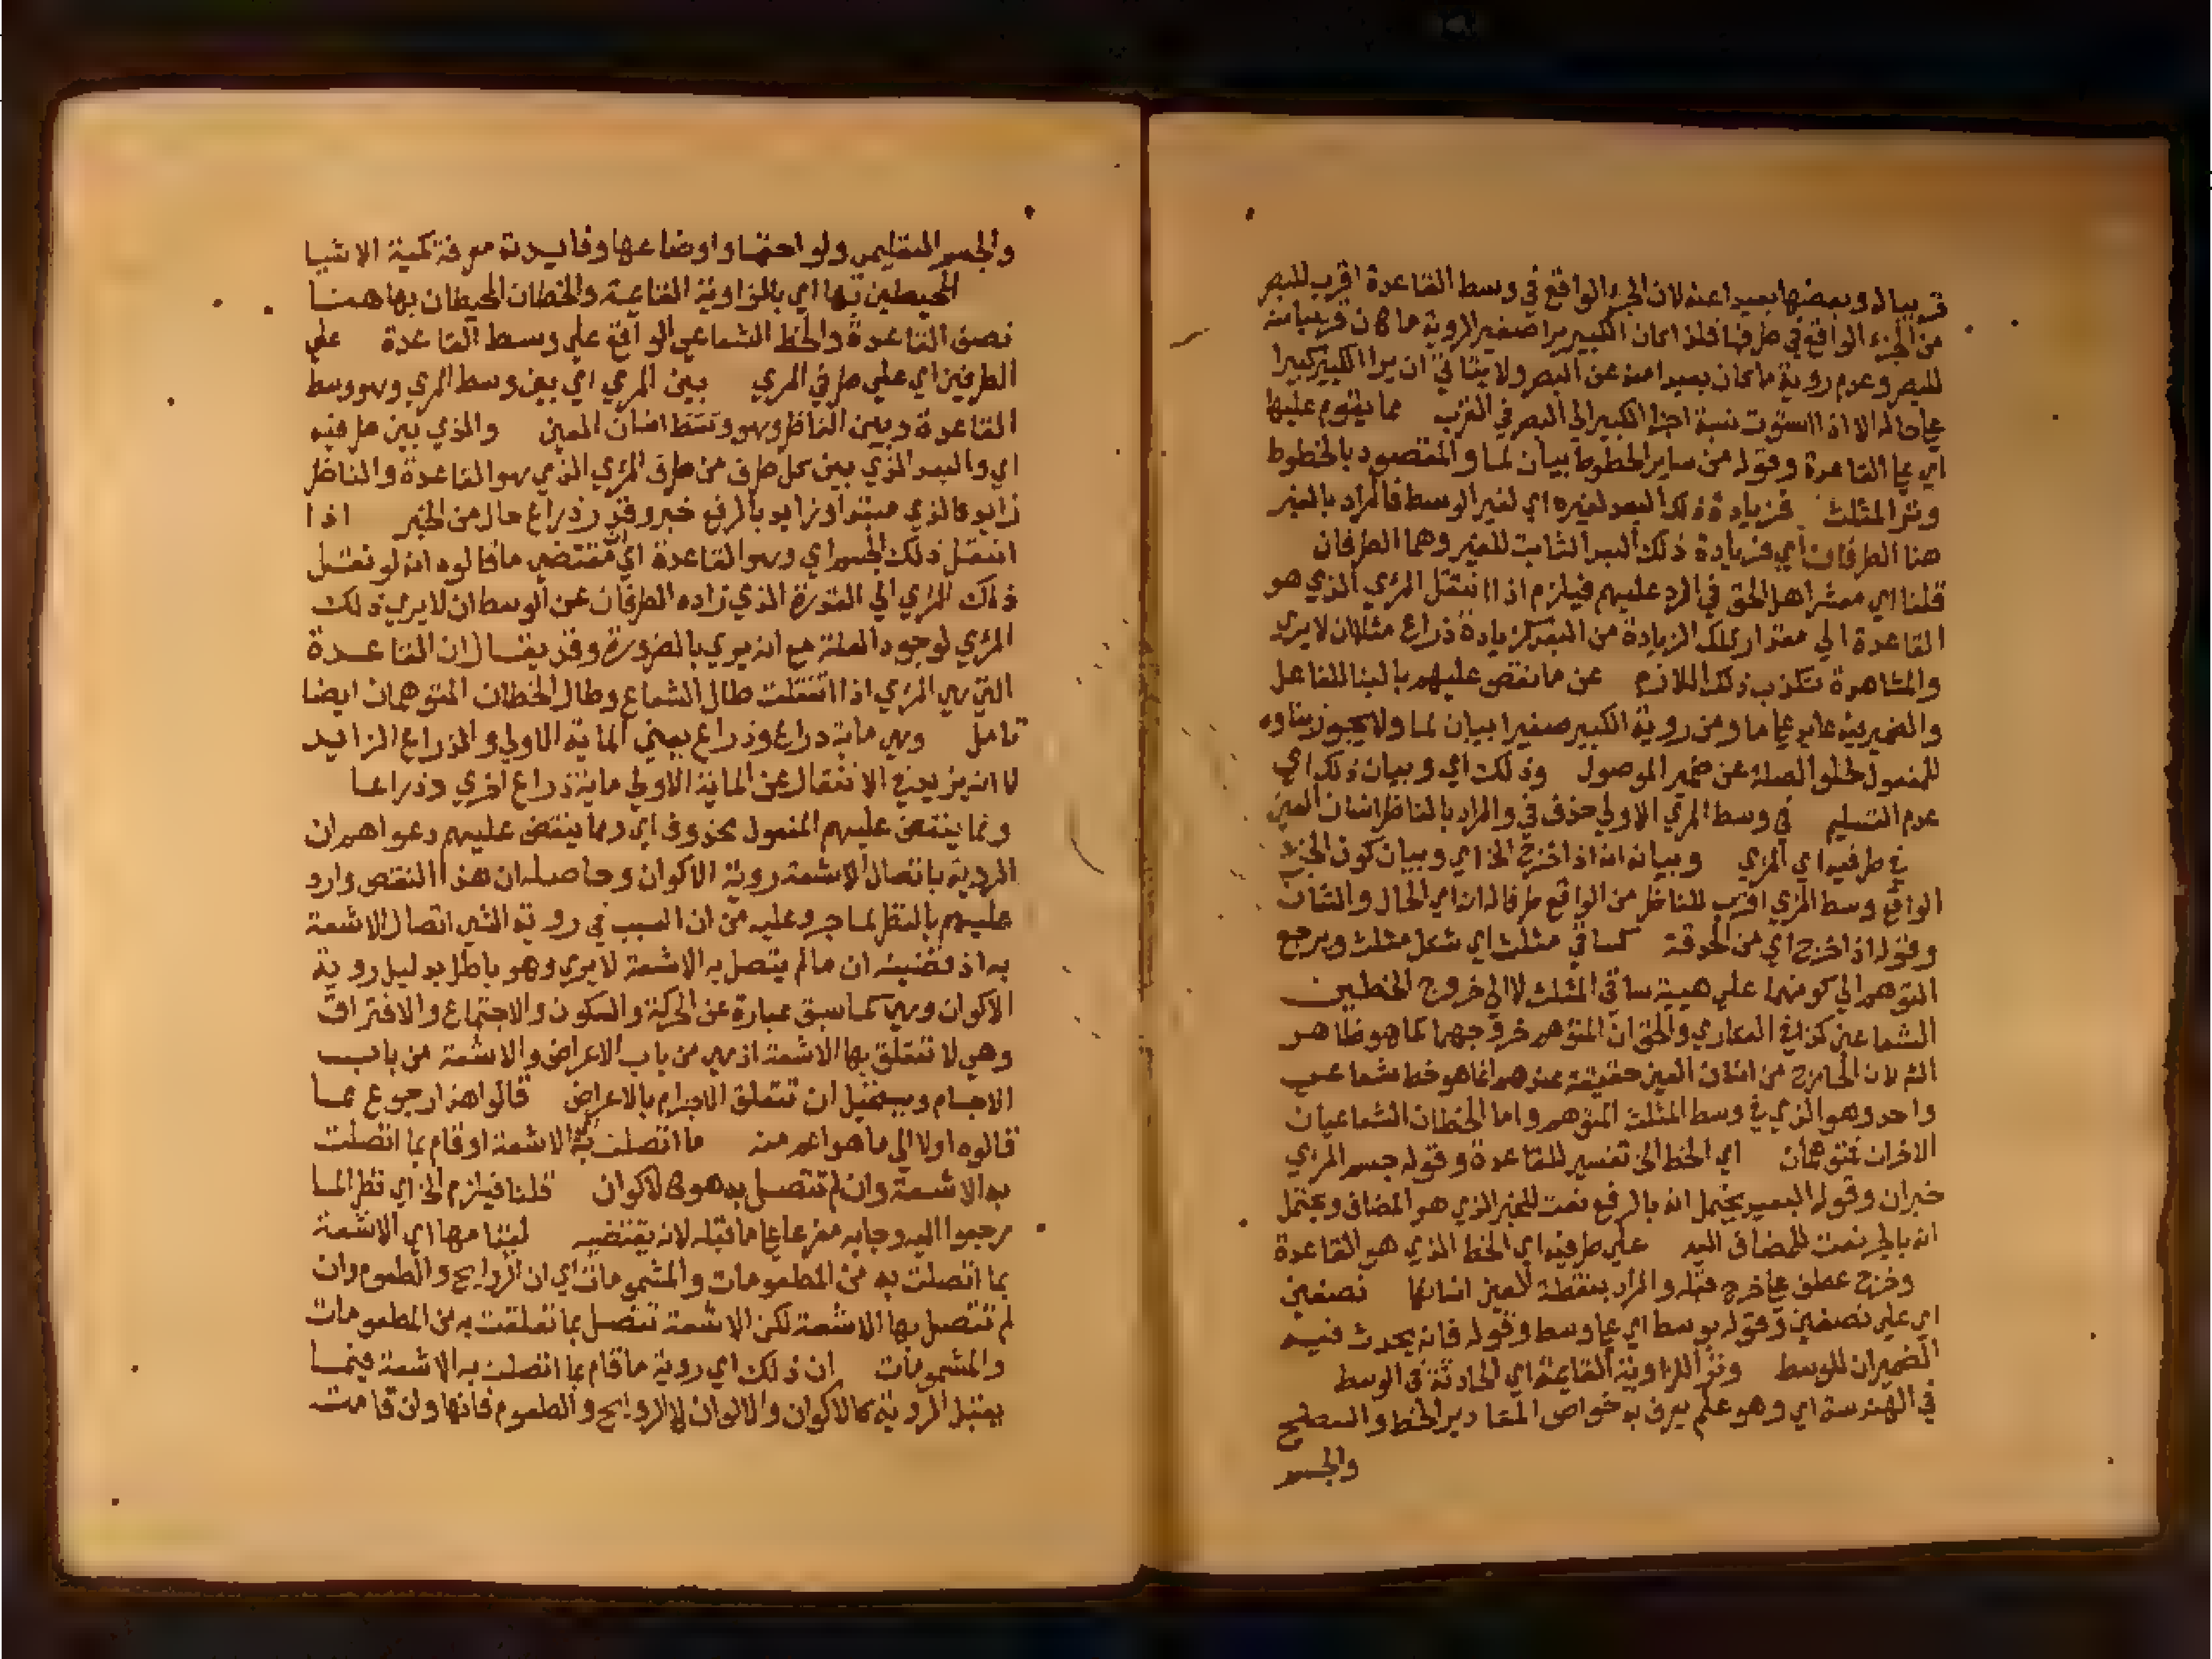 قريبا له وبعضها بعيدا عنه لان الجزء الواقع في وسط القاعدة اقرب للبصر
من الجزء الواقع في طرفها فلذا كان الكبير يرا صغيرا لروية ما كان قريبا منه
للبصر وعدم روية ما كان بعيدا منه عن البصر ولا يتاتي ان يرا الكبير كبيرا
علي حاله الا اذا استوت نسبة اجزا الكبير الي البصر في القرب مما يقوم عليها
اي علي القاعدة وقوله من ساير الخطوط بيان لما والمقصود بالخطوط
وتر المثلث فزيادة ذلك البعد لغيره اي لغير الوسط فالمراد بالغير
هنا الطرفان اي فزيادة ذلك البعد الثابت للغير وهما الطرفان
قلنا اي معشر اهل الحق في الرد عليهم فيلزم اذا انتقل المرئي الذي هو
القاعدة الي مقدار تلك الزيادة من البعد كزيادة ذراع مثلا ان لا يري
والمشاهدة تكذب ذلك اللازم عن ما نقض عليهم بالبنا للفاعل
والضمير فيه عايد علي ما ومن روية الكبير صغيرا بيان لما ولا يجوز بناوه
للمفعول لخلو الصلة عن ضمير الموصول وذلك اي وبيان ذلك اي
عدم التسليم في وسط المرئي الاولي حذف في والمراد بالناظر انسان العين
في طرفيه اي المرئي وبيانه انه اذا خرج الخ اي وبيان كون الجزء
الواقع وسط المرئي اقرب للناظر من الواقع طرفا له انه اي الحال والشان
وقوله اذا خرج اي من الحدقة كساقي مثلث اي شكل مثلث ويرجع
التوهم الي كونهما علي هيية ساقي المثلث لا الي خروج الخطين
الشماعين كذا في السكاري والحق ان المتوهم خروجهما كما هو ظاهر
الشم لان الخارج من انسان العين حقيقة عندهم انما هو خط شعاعي
واحد وهو الذي في وسط المثلث المتوهم واما الخطان الشعاعيان
الاخران فتوهمان اي الخط الخ تفسير للقاعدة وقوله جسم المرئي
خبران وقوله البصير يحتمل انه بالرفع نعت للخبر الذي هو المضاف ويحتمل
انه بالجر نعت للمضاف اليه علي طرفيه اي الخط الذي هو القاعدة
وخرج عطف علي خرج قبله والمراد بنقطة العين انسانها نصفين
اي علي نصفين وقوله بوسط اي علي وسط وقوله فانه يحدث فيه
الضميران للوسط وتر الزاوية القايمة اي الحادثة في الوسط
في الهندسة اي وهو علم يعرف به خواص المقادير الخط والسطح
والجسم
والجسم التعليمي ولواحقها واوضاعها وفايدته معرفة كمية الاشيا
المحيطين بها اي بالزاوية القايمة والخطان المحيطان بها همنا
نصف القاعدة والخط الشعاعي الواقع علي وسط القاعدة علي
الطرفين اي علي طرفي المرئي بين المرئي اي بين وسط المرئي وهو وسط
القاعدة وبين الناظر وهو وسط انسان العين والذي بين طرفيه
اي والبعد الذي بين كل طرف من طرف المرئي الذي هو القاعدة والناظر
زايد فالذي مبتدا وزايد بالرفع خبر وقدر ذراع حال من الخبر اذا
انتقل ذلك الجسم اي وهو القاعدة اي مقتضي ما قالوه انه لو نقل
ذلك المرئي الي القدرة الذي زاده الطرفان عن الوسط ان لا يري ذلك
المرئي لوجود العلة مع انه يري بالضرورة وقد يقال ان القاعدة
التي هي المرئي اذا انتقلت طال الشعاع وطال الخطان المتوهمان ايضا
تامل وهي ماية ذراع وذراع يعني الماية الاولي والذراع الزايد
لا انه يزيد في الانتقال عن الماية الاولي ماية ذراع اخري وذراعا
ومما ينقض عليهم المفعول محذوف اي ومما ينقض عليهم دعواهم ان
الروية باتصال الاشعة روية الاكوان وحاصله ان هذا النقض وارد
عليهم بالنظر لما جروا عليه من ان السبب في روية الشي اتصال الاشعة
به اذ قضيته ان مالم يتصل به الاشعة لا يري وهو باطل بدليل روية
الاكوان وهي كما سبق عبارة عن الحركة والسكون والاجتماع والافتراق
وهي لا تتعلق بها الاشعة اذ هي من باب الاعراض والاشعة من باب
الاجسام ويستحيل ان تتعلق الاجرام بالاعراض قالوا هذا رجوع عما
قالوه اولا الي ما هو اعم منه ما اتصلت به الاشعة او قام بما اتصلت
به الاشعة وان لم تتصل به هو كالاكوان قلنا فيلزم الخ اي نظر لما
رجعوا اليه وجا به مفرعا علي ما قبله لانه يقتضيه لقيامها اي الاشعة
بما اتصلت به من المطعومات والمشمومات اي ان الروايح والطعوم وان
لم تتصل بها الاشعة لكن الاشعة تتصل بما تعلقت به من المطعومات
والمشمومات ان ذلك اي روية ما قام بما اتصلت به الاشعة فيما
يقبل الروية كالاكوان والالوان لا الروايح والطعوم فانها وان قامت